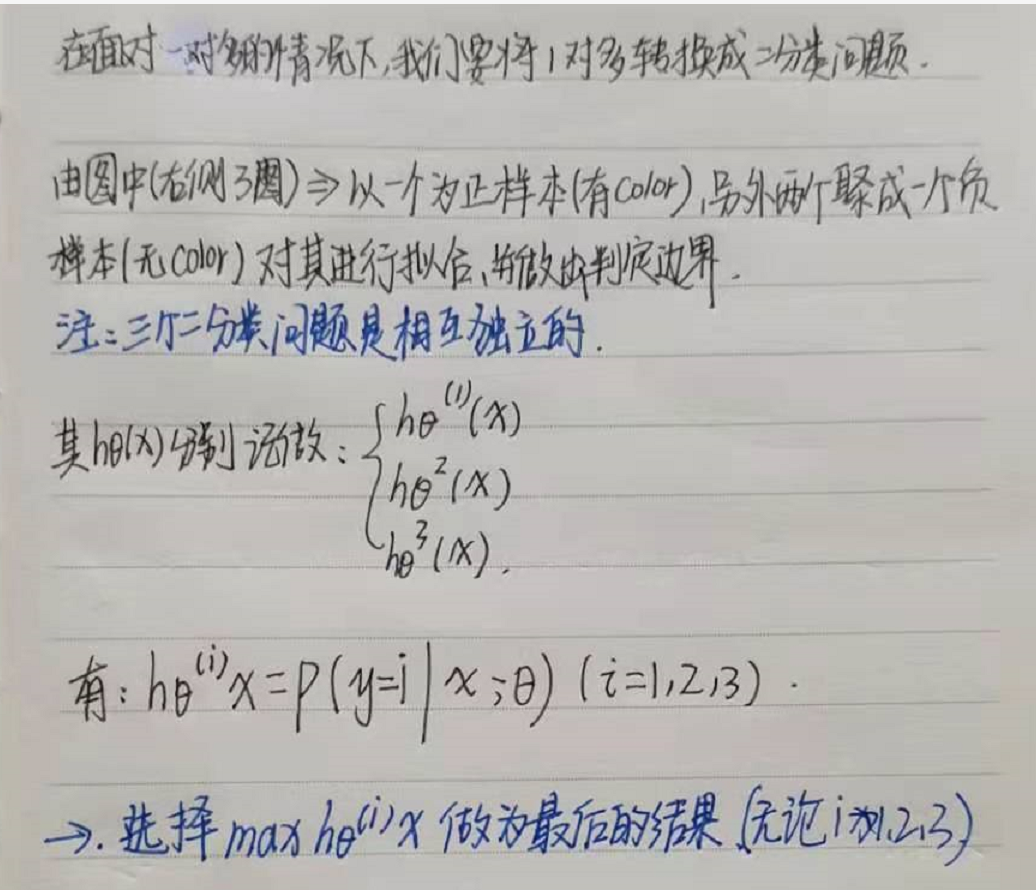 在面对一对多的情况下,我们要将1对多转换成二分类问题.
由图中(右侧3圈)⇒以一个为正样本(有color),另外两个聚成一个负
样本(无color)对其进行拟合,并做出判定边界.
注:三个二分类问题是相互独立的.
其hθ(x)分别记做:{hθ^(1)(x)
hθ^2(x)
hθ^3(x).
有:hθ^(i)x=P(y=i|x;θ)(i=1,2,3).
→.选择max hθ^(i)x做为最后的结果(无论i为1,2,3)